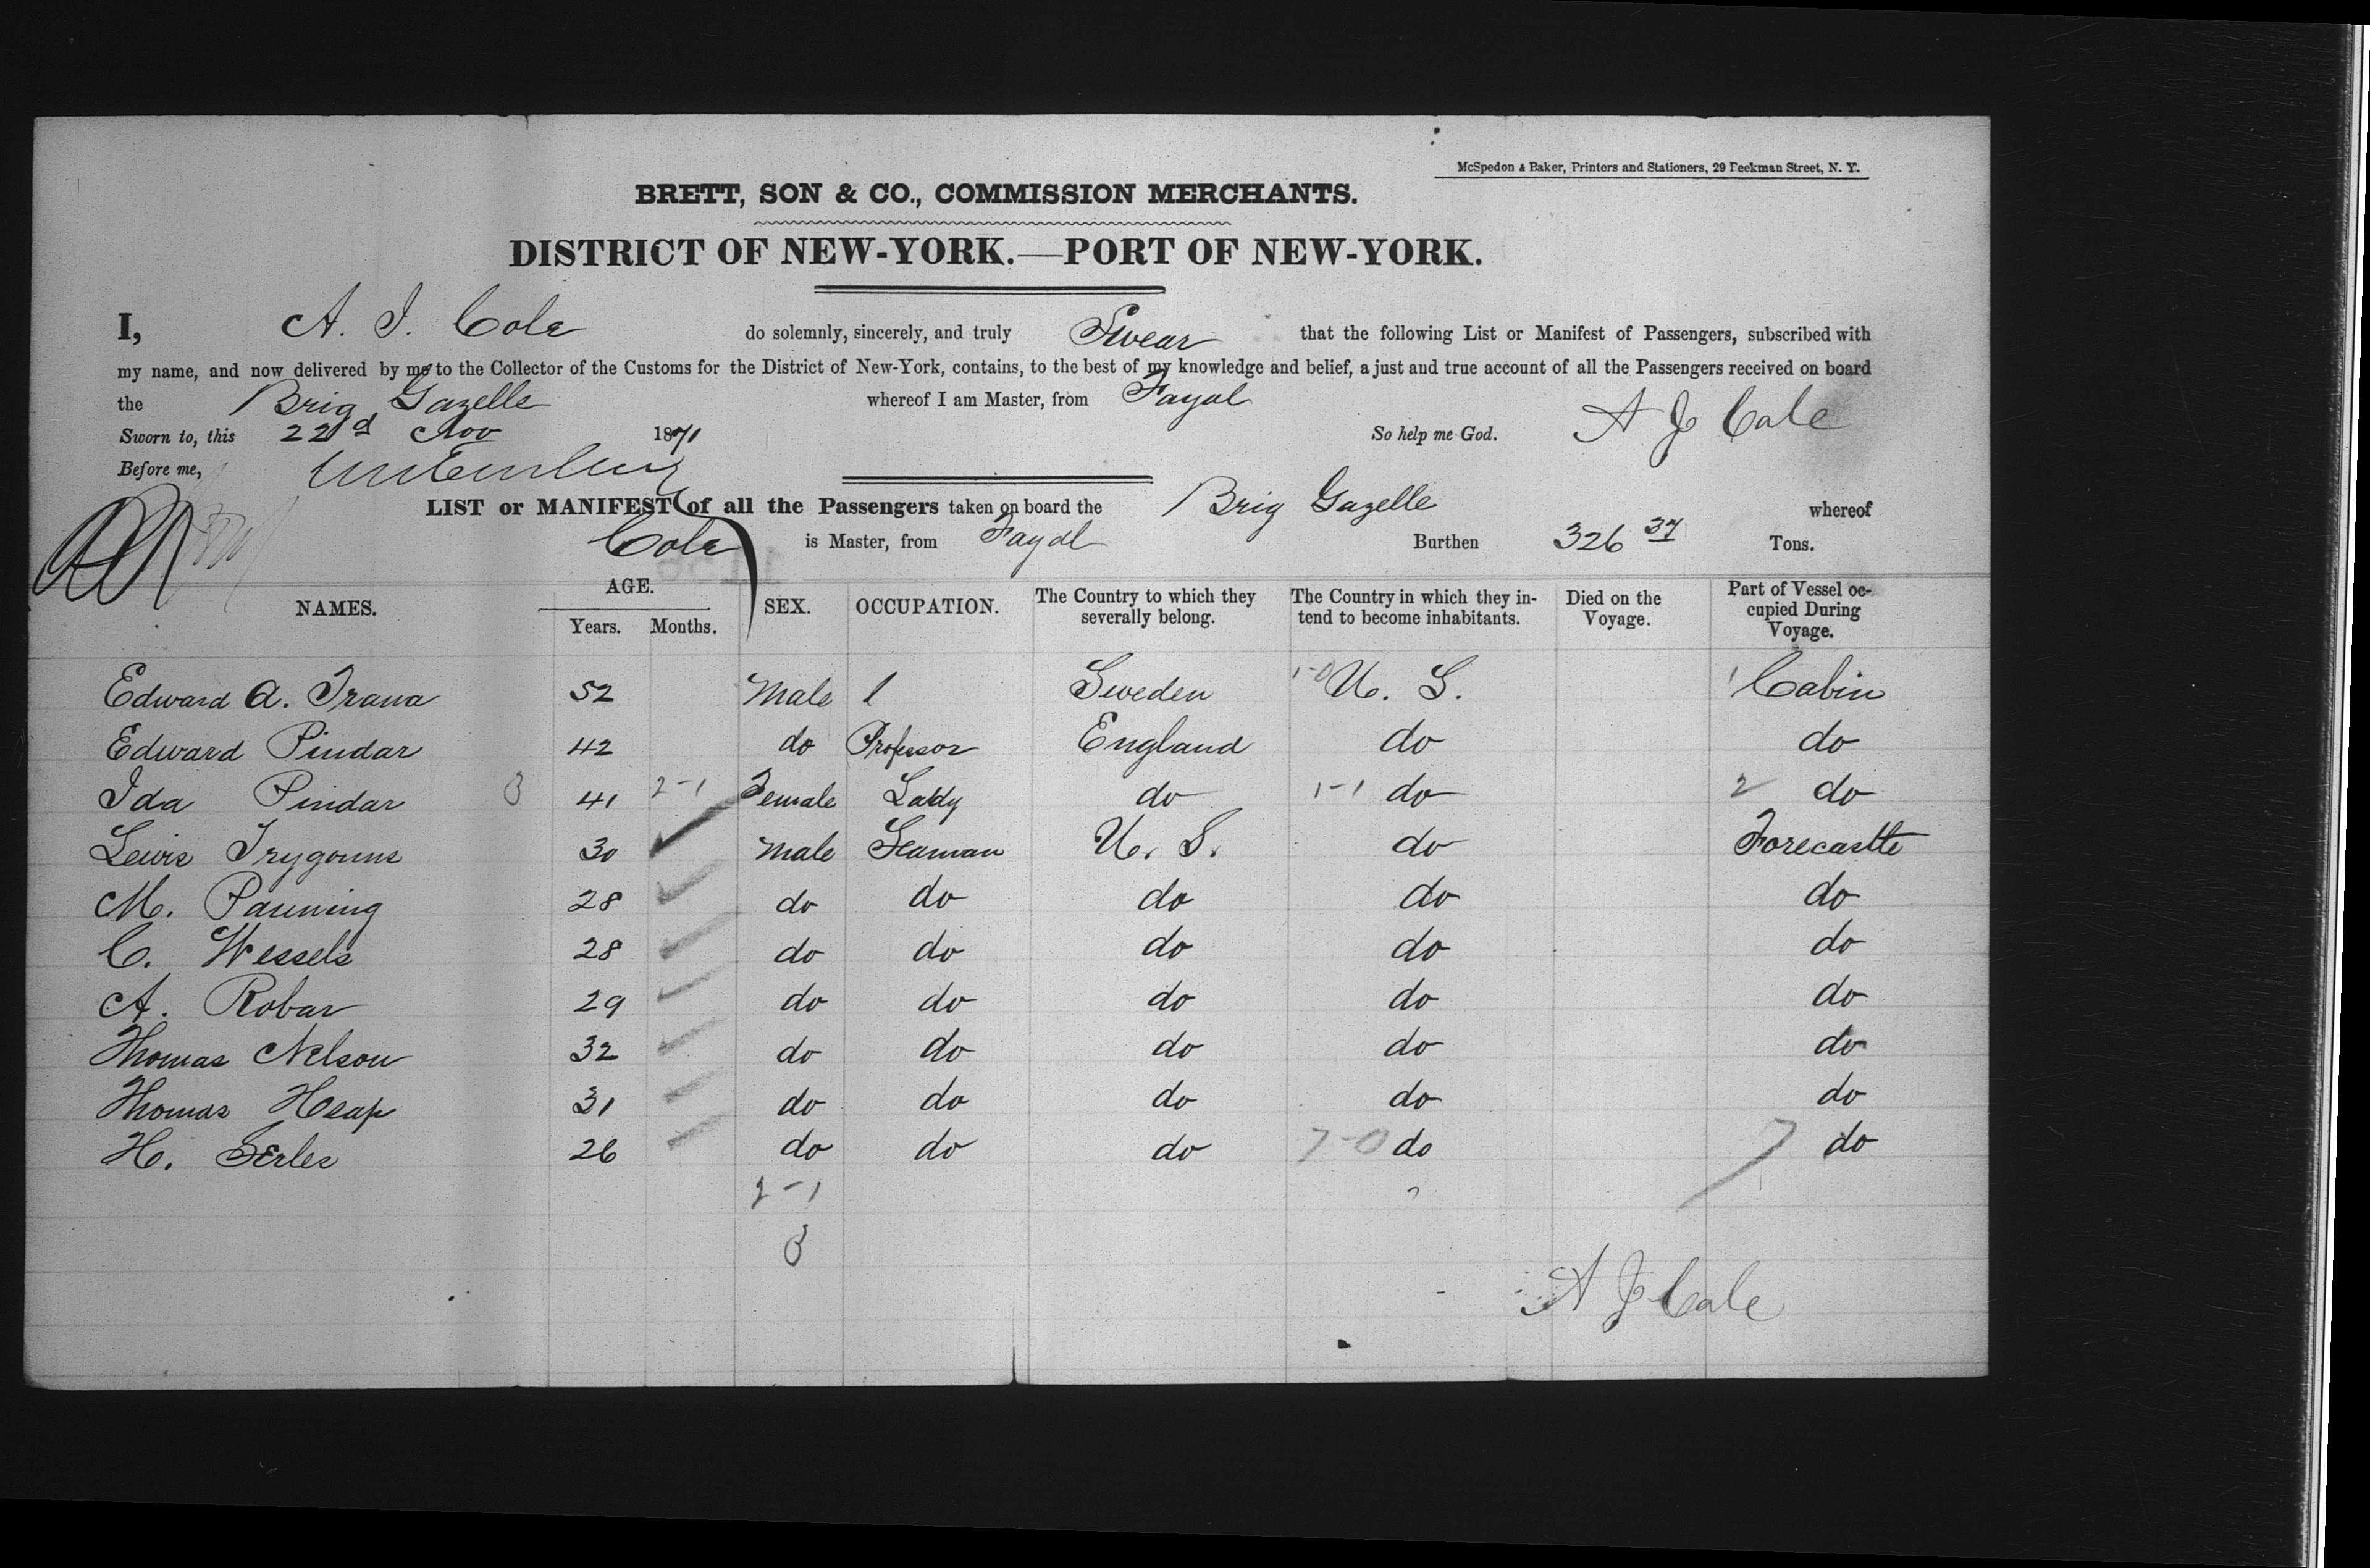 McSpedon & Baker, Printers and Stationers, 29 Beekman Street, N. Y.
BRETT, SON & CO., COMMISSION MERCHANTS.
DISTRICT OF NEW-YORK.—PORT OF NEW-YORK.
I, A. J. Cole do solemnly, sincerely, and truly Swear that the following List or Manifest of Passengers, subscribed with
my name, and now delivered by me to the Collector of the Customs for the District of New-York, contains, to the best of my knowledge and belief, a just and true account of all the Passengers received on board
the Brig Gazelle whereof I am Master, from Fayal
Sworn to, this 22d Nov 1871 So help me God. A J Cole
Before me,
LIST or MANIFEST of all the Passengers taken on board the Brig Gazelle whereof
Cole is Master, from Fayal Burthen 326 37 Tons.
NAMES. AGE. Years. Months. SEX. OCCUPATION. The Country to which they severally belong. The Country in which they intend to become inhabitants. Died on the Voyage. Part of Vessel occupied During Voyage.
Edward A. 52 Male Sweden 1-0 U. S. 1 Cabin
Edward Pindar 42 do Professor England do do
Ida Pindar 3 41 2-1 Female Lady do 1-1 do 2 do
Lewis 30 Male Seaman U. S. do Forecastle
M. 28 do do do do do
C. Wessels 28 do do do do do
A. Robar 29 do do do do do
Thomas Nelson 32 do do do do do
Thomas Heap 31 do do do do do
H. Serles 26 do do do 7-0 do 7 do
2-1
3
A J Cole